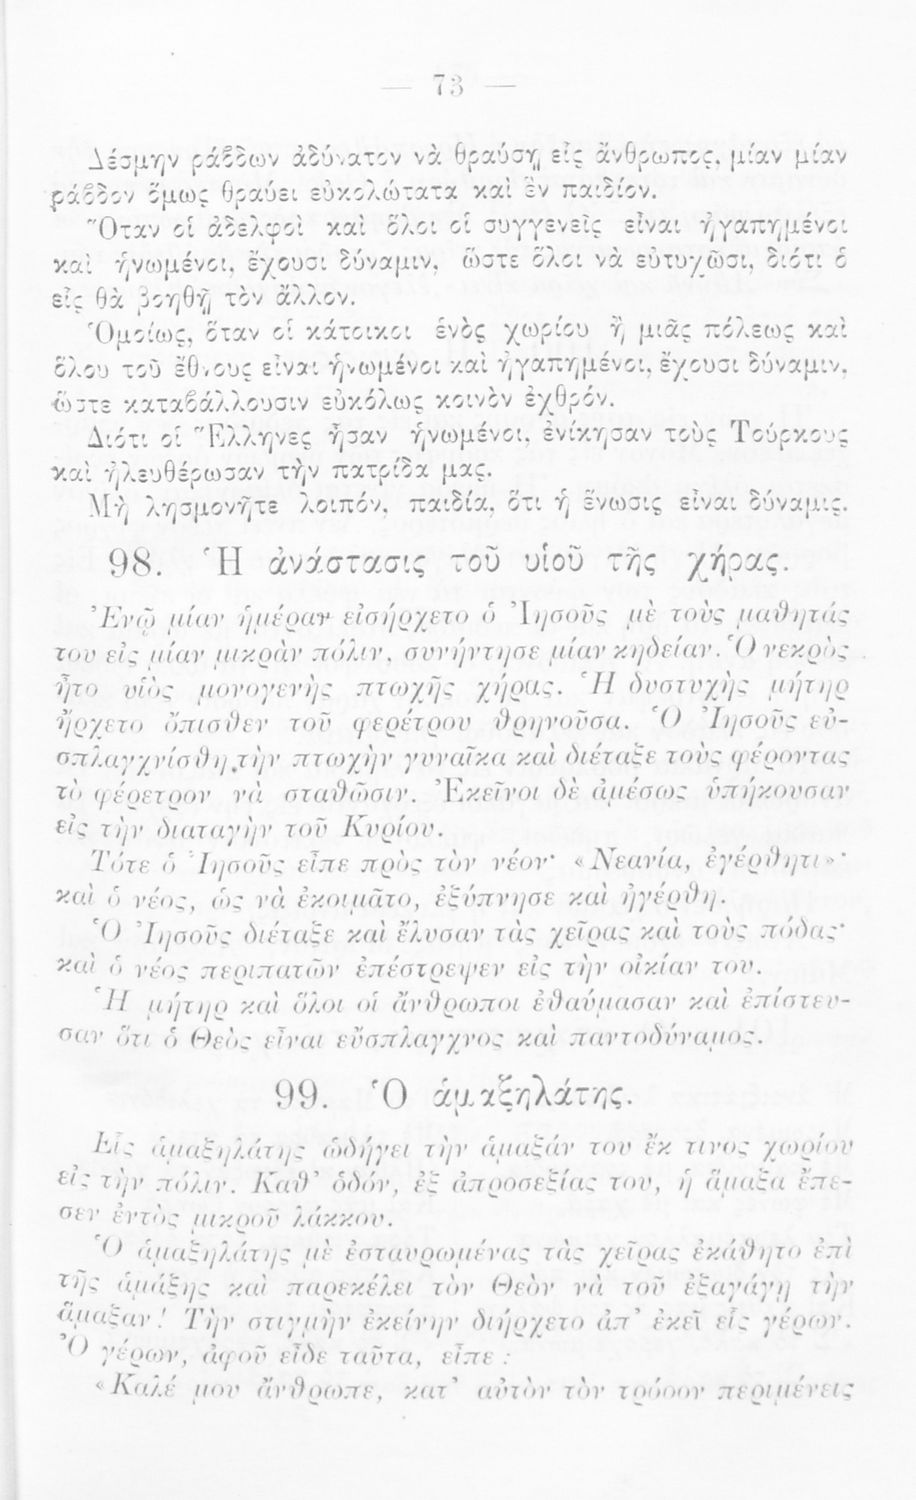 — 73 —
Δέσμην ράβδων ἀδύνατον νὰ θραύσῃ εἷς ἄνθρωπος, μίαν μίαν
ράβδον ὅμως θραύει εὐκολώτατα καὶ ἓν παιδίον.
Ὅταν οἱ ἀδελφοὶ καὶ ὅλοι οἱ συγγενεῖς εἶναι ἠγαπημένοι
καὶ ἡνωμένοι, ἔχουσι δύναμιν, ὥστε ὅλοι νὰ εὐτυχῶσι, διότι ὁ
εἷς θὰ βοηθῇ τὸν ἄλλον.
Ὁμοίως, ὅταν οἱ κάτοικοι ἑνὸς χωρίου ἢ μιᾶς πόλεως καὶ
ὅλου τοῦ ἔθνους εἶναι ἡνωμένοι καὶ ἠγαπημένοι, ἔχουσι δύναμιν,
ὥστε καταβάλλουσιν εὐκόλως κοινὸν ἐχθρόν.
Διότι οἱ Ἕλληνες ἦσαν ἡνωμένοι, ἐνίκησαν τοὺς Τούρκους
καὶ ἠλευθέρωσαν τὴν πατρίδα μας.
Μὴ λησμονῆτε λοιπόν, παιδία, ὅτι ἡ ἕνωσις εἶναι δύναμις.
98. Ἡ ἀνάστασις τοῦ υἱοῦ τῆς χήρας.
Ἐνῷ μίαν ἡμέραν εἰσήρχετο ὁ Ἰησοῦς μὲ τοὺς μαθητάς
του εἰς μίαν μικρὰν πόλιν, συνήντησε μίαν κηδείαν. Ὁ νεκρὸς
ἦτο υἱὸς μονογενὴς πτωχῆς χήρας. Ἡ δυστυχὴς μήτηρ
ἤρχετο ὄπισθεν τοῦ φερέτρου θρηνοῦσα. Ὁ Ἰησοῦς εὐ-
σπλαγχνίσθη τὴν πτωχὴν γυναῖκα καὶ διέταξε τοὺς φέροντας
τὸ φέρετρον νὰ σταθῶσιν. Ἐκεῖνοι δὲ ἀμέσως ὑπήκουσαν
εἰς τὴν διαταγὴν τοῦ Κυρίου.
Τότε ὁ Ἰησοῦς εἶπε πρὸς τὸν νέον· «Νεανία, ἐγέρθητι»·
καὶ ὁ νέος, ὡς νὰ ἐκοιμᾶτο, ἐξύπνησε καὶ ἠγέρθη.
Ὁ Ἰησοῦς διέταξε καὶ ἔλυσαν τὰς χεῖρας καὶ τοὺς πόδας·
καὶ ὁ νέος περιπατῶν ἐπέστρεψεν εἰς τὴν οἰκίαν του.
Ἡ μήτηρ καὶ ὅλοι οἱ ἄνθρωποι ἐθαύμασαν καὶ ἐπίστευ-
σαν ὅτι ὁ Θεὸς εἶναι εὔσπλαγχνος καὶ παντοδύναμος.
99. Ὁ ἁμαξηλάτης.
Εἷς ἁμαξηλάτης ὡδήγει τὴν ἅμαξάν του ἔκ τινος χωρίου
εἰς τὴν πόλιν. Καθ' ὁδόν, ἐξ ἀπροσεξίας του, ἡ ἅμαξα ἔπε-
σεν ἐντὸς μικροῦ λάκκου.
Ὁ ἁμαξηλάτης μὲ ἐσταυρωμένας τὰς χεῖρας ἐκάθητο ἐπὶ
τῆς ἁμάξης καὶ παρεκάλει τὸν Θεὸν νὰ τοῦ ἐξαγάγῃ τὴν
ἅμαξαν! Τὴν στιγμὴν ἐκείνην διήρχετο ἀπ' ἐκεῖ εἷς γέρων.
Ὁ γέρων, ἀφοῦ εἶδε ταῦτα, εἶπε :
«Καλέ μου ἄνθρωπε, κατ' αὐτὸν τὸν τρόπον περιμένεις